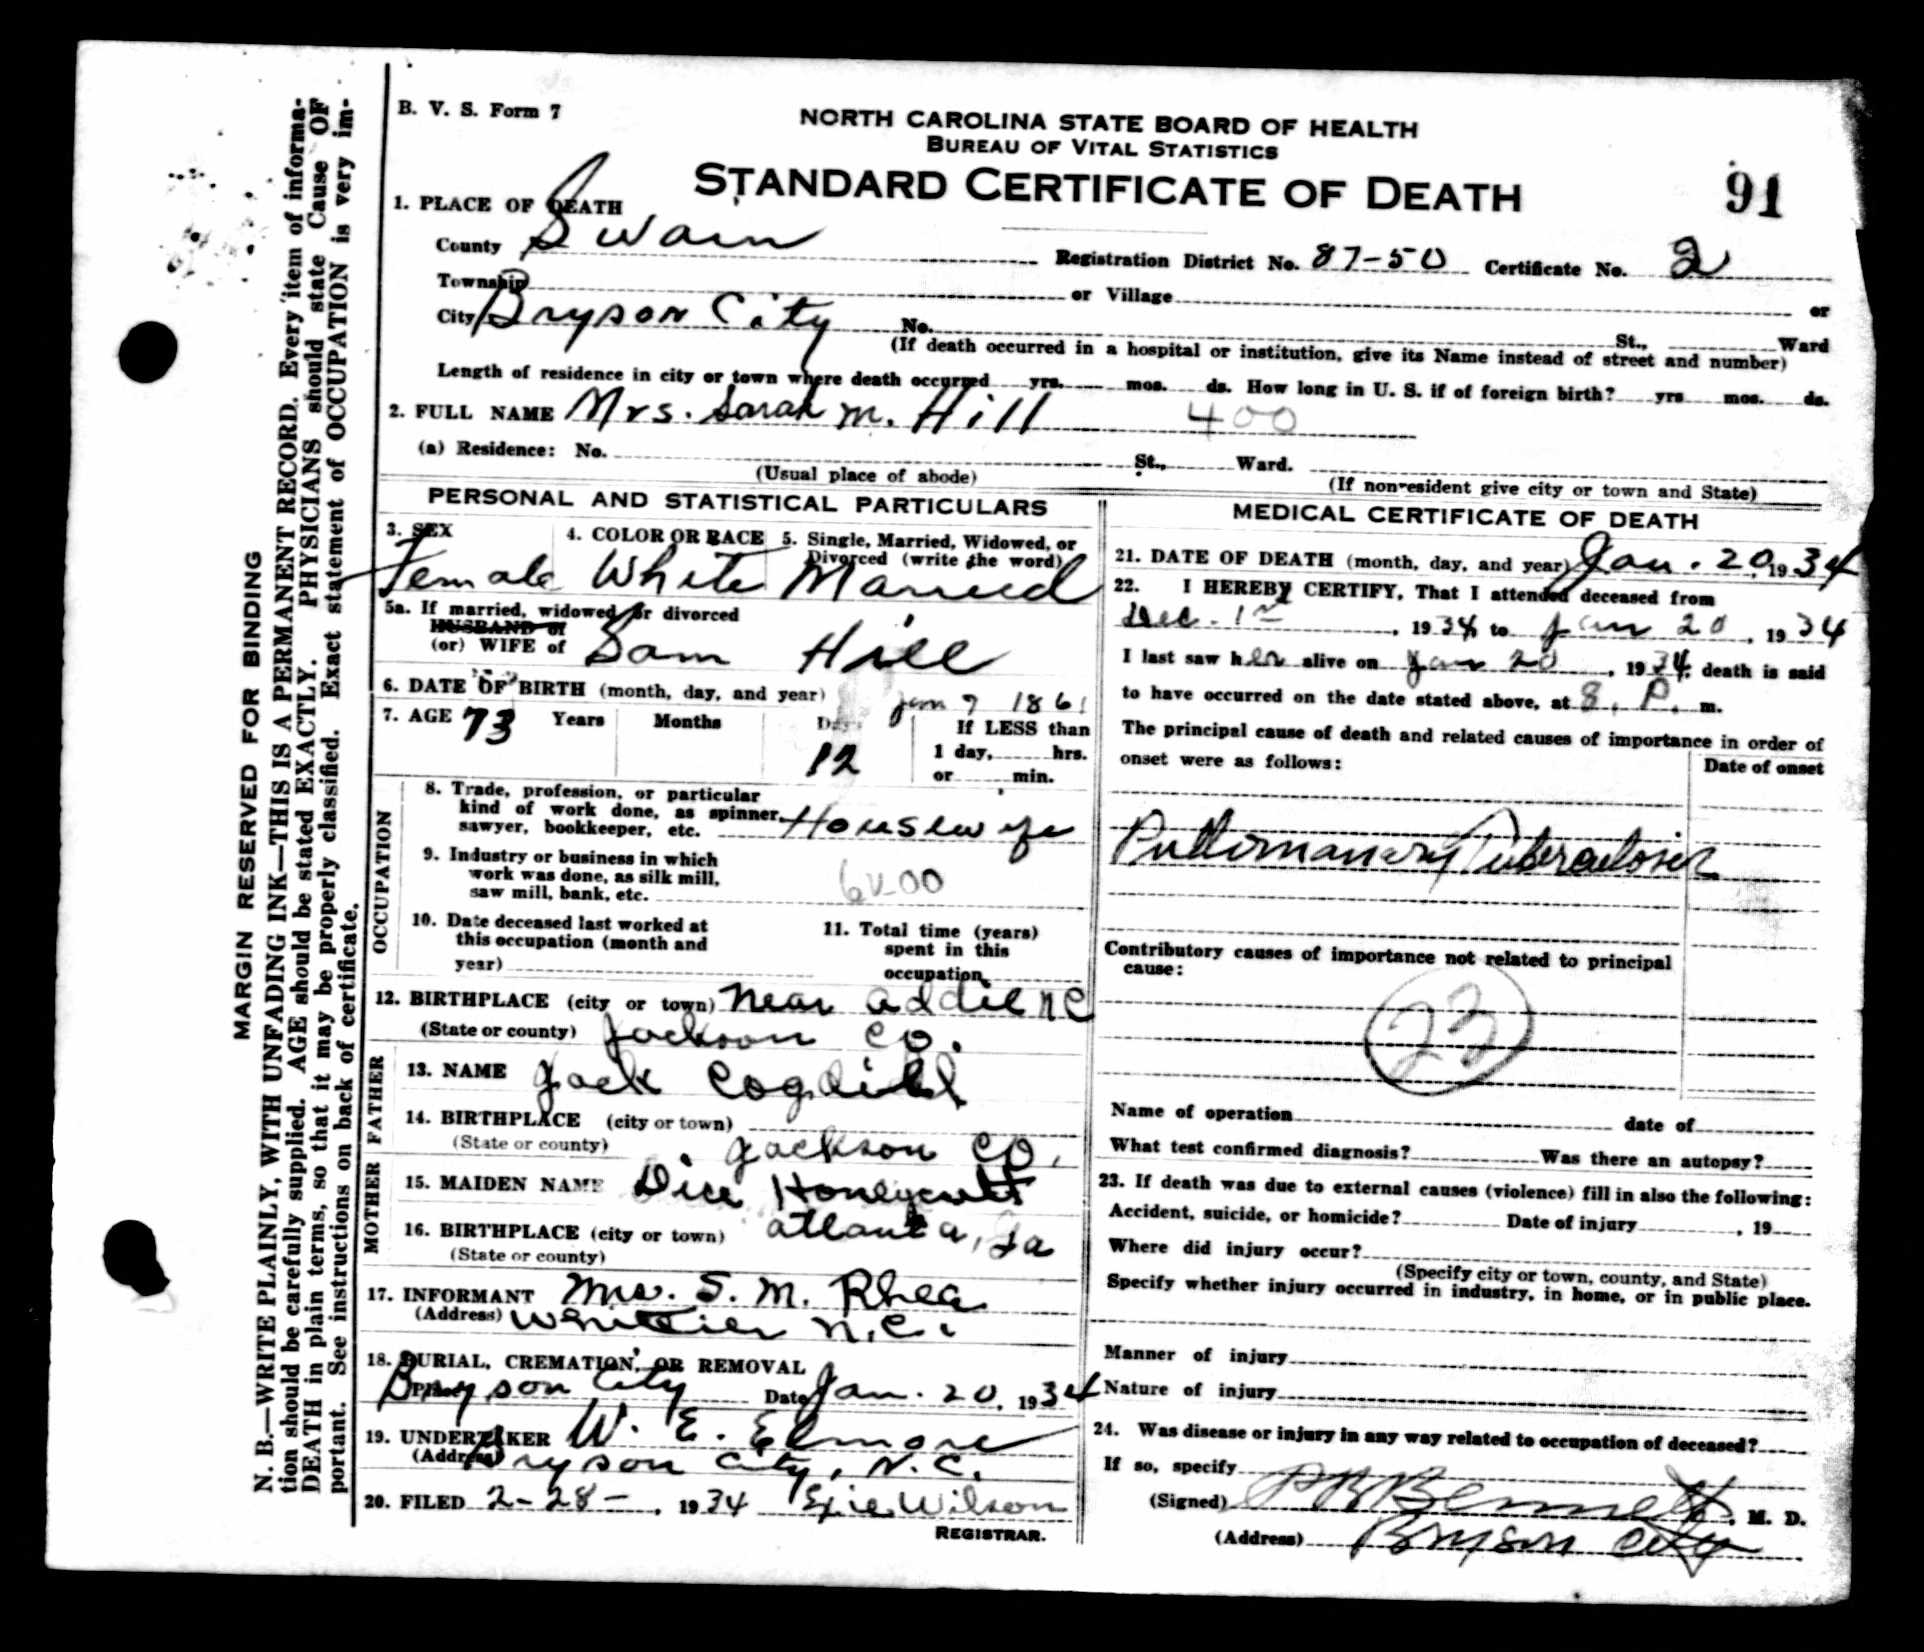 B. V. S. Form 7
NORTH CAROLINA STATE BOARD OF HEALTH
BUREAU OF VITAL STATISTICS
STANDARD CERTIFICATE OF DEATH
91
1. PLACE OF DEATH
County Swain Registration District No. 87-50 Certificate No. 2
Township or Village or
City Bryson City No. St., Ward
(If death occurred in a hospital or institution, give its Name instead of street and number)
Length of residence in city or town where death occurred yrs. mos. ds. How long in U. S. if of foreign birth? yrs mos. ds.
2. FULL NAME Mrs. Sarah M. Hill 400
(a) Residence: No. St., Ward.
(Usual place of abode) (If nonresident give city or town and State)
PERSONAL AND STATISTICAL PARTICULARS
3. SEX 4. COLOR OR RACE 5. Single, Married, Widowed, or
Divorced (write the word)
Female White Married
5a. If married, widowed or divorced
HUSBAND of
(or) WIFE of Sam Hill
6. DATE OF BIRTH (month, day, and year) Jan 7 1861
7. AGE 73 Years Months Days If LESS than
12 1 day, hrs.
or min.
OCCUPATION
8. Trade, profession, or particular
kind of work done, as spinner,
sawyer, bookkeeper, etc. Housewife
9. Industry or business in which
work was done, as silk mill,
saw mill, bank, etc.
10. Date deceased last worked at
this occupation (month and
year)
11. Total time (years)
spent in this
occupation
12. BIRTHPLACE (city or town) near addie NC
(State or county) Jackson Co.
FATHER
13. NAME Jack Cogdill
14. BIRTHPLACE (city or town)
(State or county) Jackson Co.
MOTHER
15. MAIDEN NAME Dice Honeycutt
16. BIRTHPLACE (city or town) atlanta, Ga
(State or county)
17. INFORMANT Mrs. S. M. Rhea
(Address) Whittier N.C.
18. BURIAL, CREMATION, OR REMOVAL
Place Bryson City Date Jan. 20, 1934
19. UNDERTAKER W. E. Elmore
(Address) Bryson City, N.C.
20. FILED 2-28-, 1934 Exie Wilson
REGISTRAR.
MEDICAL CERTIFICATE OF DEATH
21. DATE OF DEATH (month, day, and year) Jan. 20, 1934
22. I HEREBY CERTIFY, That I attended deceased from
Dec. 1st, 1934, to Jan 20, 1934
I last saw her alive on Jan 20, 1934, death is said
to have occurred on the date stated above, at 8. P. m.
The principal cause of death and related causes of importance in order of
onset were as follows: Date of onset
Pullimanary Tuberculosis
Contributory causes of importance not related to principal
cause:
23
Name of operation date of
What test confirmed diagnosis? Was there an autopsy?
23. If death was due to external causes (violence) fill in also the following:
Accident, suicide, or homicide? Date of injury, 19
Where did injury occur?
(Specify city or town, county, and State)
Specify whether injury occurred in industry, in home, or in public place.
Manner of injury
Nature of injury
24. Was disease or injury in any way related to occupation of deceased?
If so, specify
(Signed) P R Bennett, M. D.
(Address) Bryson City
MARGIN RESERVED FOR BINDING
N. B.—WRITE PLAINLY, WITH UNFADING INK—THIS IS A PERMANENT RECORD. Every item of informa-
tion should be carefully supplied. AGE should be stated EXACTLY. PHYSICIANS should state Cause OF
DEATH in plain terms, so that it may be properly classified. Exact statement of OCCUPATION is very im-
portant. See instructions on back of certificate.